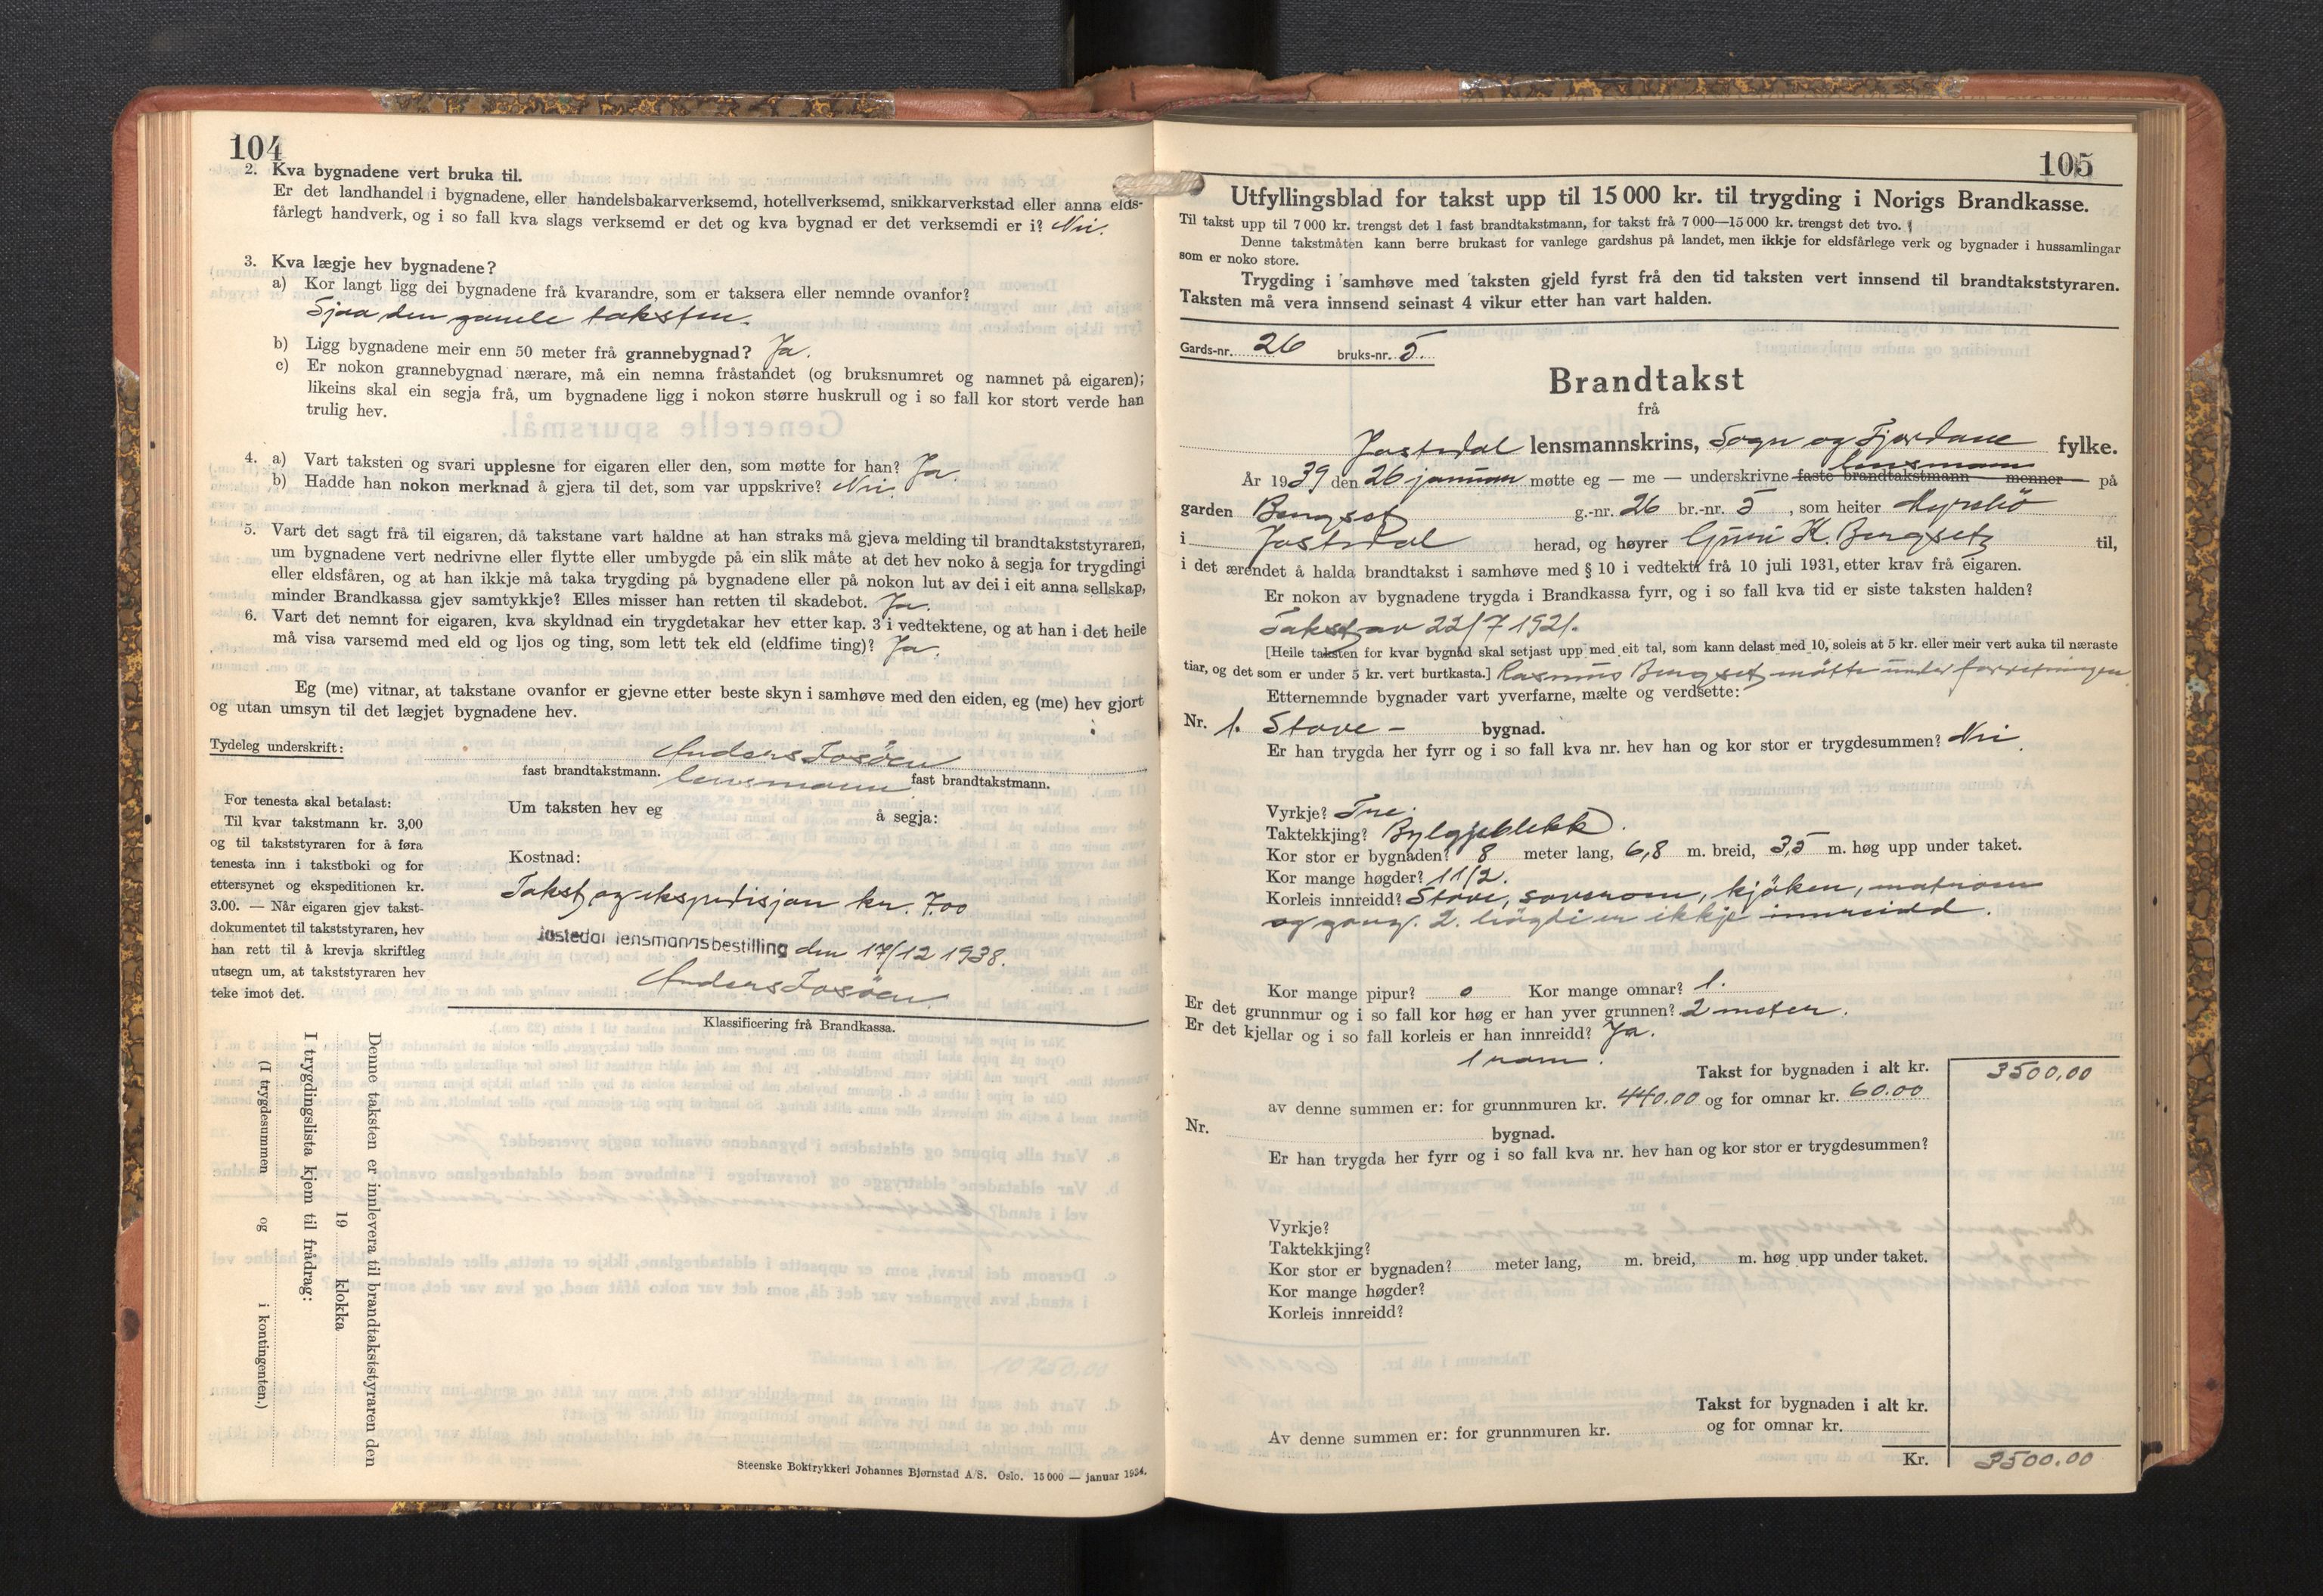 104
2. Kva bygnadene vert bruka til.
Er det landhandel i bygnadene, eller handelsbakarverksemd, hotellverksemd, snikkarverkstad eller anna elds-
fårlegt handverk, og i so fall kva slags verksemd er det og kva bygnad er det verksemdi er i? Nei.
3. Kva lægje hev bygnadene?
a) Kor langt ligg dei bygnadene frå kvarandre, som er taksera eller nemnde ovanfor?
Sjaa den gamle taksten.
b) Ligg bygnadene meir enn 50 meter frå grannebygnad? Ja.
c) Er nokon grannebygnad nærare, må ein nemna fråstandet (og bruksnumret og namnet på eigaren);
likeins skal ein segja frå, um bygnadene ligg i nokon større huskrull og i so fall kor stort verde han
trulig hev.
4. a) Vart taksten og svari upplesne for eigaren eller den, som møtte for han? Ja.
b) Hadde han nokon merknad å gjera til det, som var uppskrive? Nei.
5. Vart det sagt frå til eigaren, då takstane vart haldne at han straks må gjeva melding til brandtakststyraren,
um bygnadene vert nedrivne eller flytte eller umbygde på ein slik måte at det hev noko å segja for trygdingi
eller eldsfåren, og at han ikkje må taka trygding på bygnadene eller på nokon lut av dei i eit anna sellskap,
minder Brandkassa gjev samtykkje? Elles misser han retten til skadebot. Ja.
6. Vart det nemnt for eigaren, kva skyldnad ein trygdetakar hev etter kap. 3 i vedtektene, og at han i det heile
må visa varsemd med eld og ljos og ting, som lett tek eld (eldfime ting)? Ja.
Eg (me) vitnar, at takstane ovanfor er gjevne etter beste skyn i samhøve med den eiden, eg (me) hev gjort
og utan umsyn til det lægjet bygnadene hev.
Tydeleg underskrift: Anders Fosøen
fast brandtakstmann. lensmann fast brandtakstmann.
For tenesta skal betalast:
Til kvar takstmann kr. 3,00
og til takststyraren for å føra
tenesta inn i takstboki og for
ettersynet og ekspeditionen kr.
3.00. — Når eigaren gjev takst-
dokumentet til takststyraren, hev
han rett til å krevja skriftleg
utsegn um, at takststyraren hev
teke imot det.
Um taksten hev eg å segja:
Kostnad:
Takst og ekspedisjon kr. 7.00
Jostedal lensmannsbestilling den 17/12 1938.
Anders Fosøen
Klassificering frå Brandkassa.
Denne taksten er innlevera til brandtakststyraren den
19 klokka
I trygdingslista kjem til frådrag:
(I trygdesummen og i kontingenten.)
Steenske Boktrykkeri Johannes Bjørnstad A/S. Oslo. 15 000 — januar 1934.
105
Utfyllingsblad for takst upp til 15 000 kr. til trygding i Norigs Brandkasse.
Til takst upp til 7 000 kr. trengst det 1 fast brandtakstmann, for takst frå 7 000—15 000 kr. trengst det tvo.
Denne takstmåten kann berre brukast for vanlege gardshus på landet, men ikkje for eldsfårlege verk og bygnader i hussamlingar
som er noko store.
Trygding i samhøve med taksten gjeld fyrst frå den tid taksten vert innsend til brandtakststyraren.
Taksten må vera innsend seinast 4 vikur etter han vart halden.
Gards-nr. 26 bruks-nr. 5.
Brandtakst
frå
Jostedal lensmannskrins, Sogn og Fjordane fylke.
lensmann
År 1939 den 26 januar møtte eg — me — underskrivne faste brandtakstmann — menner — på
garden Bergset g.-nr. 26 br.-nr. 5, som heiter Myrebø
i Jostedal herad, og høyrer Guri K. Bergset til,
i det ærendet å halda brandtakst i samhøve med § 10 i vedtekti frå 10 juli 1931, etter krav frå eigaren.
Er nokon av bygnadene trygda i Brandkassa fyrr, og i so fall kva tid er siste taksten halden?
Takst av 22/7 1921.
[Heile taksten for kvar bygnad skal setjast upp med eit tal, som kann delast med 10, soleis at 5 kr. eller meir vert auka til næraste
tiar, og det som er under 5 kr. vert burtkasta.] Rasmus Bergset møtte under forretningen.
Etternemnde bygnader vart yverfarne, mælte og verdsette:
Nr. 1. Stove - bygnad.
Er han trygda her fyrr og i so fall kva nr. hev han og kor stor er trygdesummen? Nei.
Vyrkje? Tre.
Taktekkjing? Bylgjeblekk.
Kor stor er bygnaden? 8 meter lang, 6,8 m. breid, 3,5 m. høg upp under taket.
Kor mange høgder? 1 1/2.
Korleis innreidd? Stove, soverom, kjøken, matrom
og gang. 2. høgdi er ikkje innreidd.
Kor mange pipur? 0 Kor mange omnar? 1.
Er det grunnmur og i so fall kor høg er han yver grunnen? 2 meter.
Er det kjellar og i so fall korleis er han innreidd? Ja.
1 rom.
Takst for bygnaden i alt kr. 3500,00
av denne summen er: for grunnmuren kr. 440.00 og for omnar kr. 60.00
Nr. bygnad.
Er han trygda her fyrr og i so fall kva nr. hev han og kor stor er trygdesummen?
Vyrkje?
Taktekkjing?
Kor stor er bygnaden? meter lang, m. breid, m. høg upp under taket.
Kor mange høgder?
Korleis innreidd?
Takst for bygnaden i alt kr.
Av denne summen er: for grunnmuren kr. og for omnar kr.
Kr. 3500.00